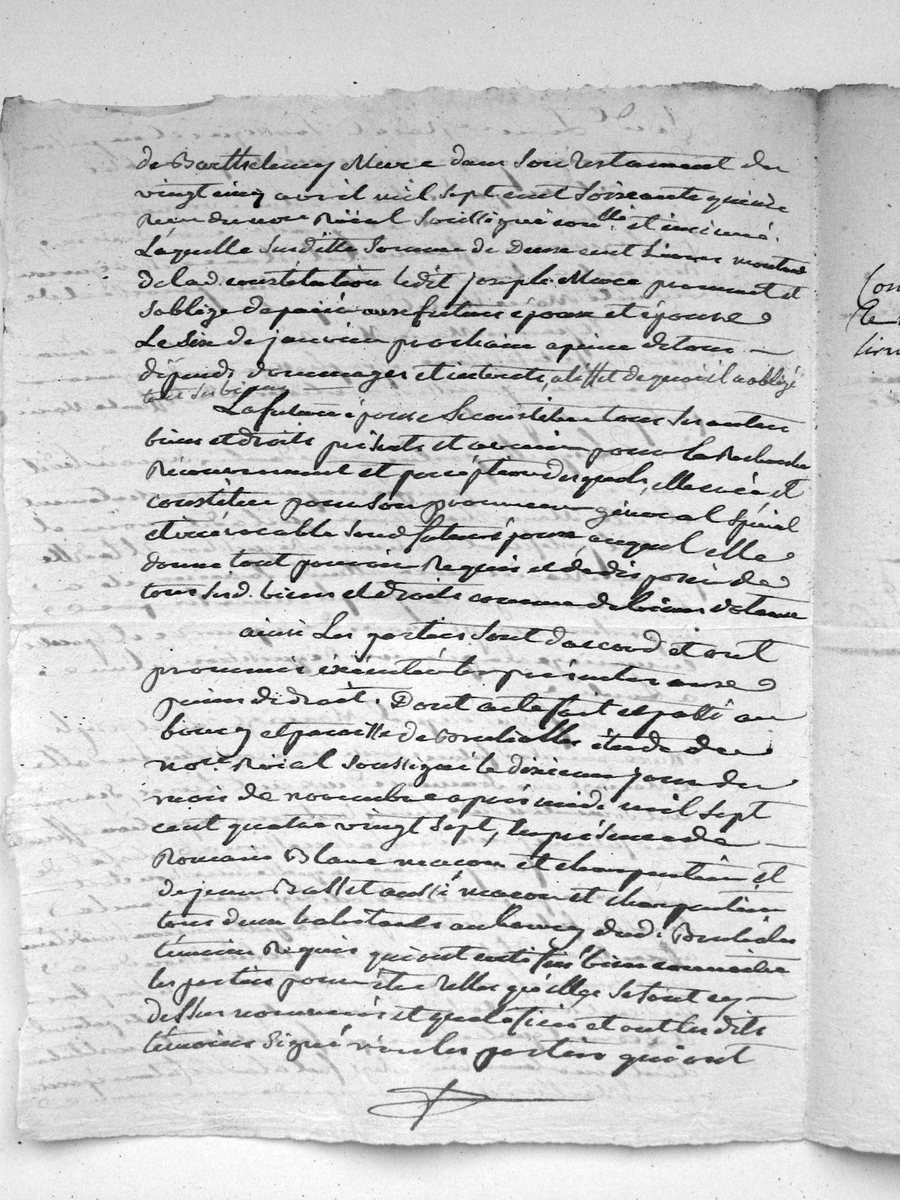 de Barthelemy Mure dans son testament du
vingt cinq avril mil sept cent soixante quinze
Reçu du no.re Roïal soussigné con.llé et insinué.
Laquelle susditte somme de Deux cent Livres montant
de lad. constitution ledit joseph Mure promet et
s'oblige de païer aux futurs époux et épouse
Le six de janvier prochain a peine de tous
dépends dommages et interets, a l'effet de quoi il a obligé
tous ses biens
La future épouse se constitue tous ses autres
biens et droits présents et avenir pour la Recherche
Recouvrement et perception desquels, elle crée et
constitue pour son procureur général spécial
et irrévocable sond. futur époux auquel elle
donne tout pouvoir Requis et de disposer de
tous sesd. biens et droits comme de
ainsi Les parties sont d'accord et ont
promis exécuter les présentes aux
peines de droit. Dont acte fait et passé au
bourg et paroisse de étude du
no.re Roïal soussigné le dixieme jour du
mois de novembre après midi mil sept
cent quatre vingt sept, En présence de
Romain Blanc macon et charpentier et
de jean Basset aussi macon et charpentier
tous deux habitants au bourg dud.
témoins Requis qui ont certifié bien connoitre
les parties pour être telles qu'elles se sont cy
dessus nommées et qualifiées et ont lesdits
témoins signé non les parties qui ont
Con
le
livre